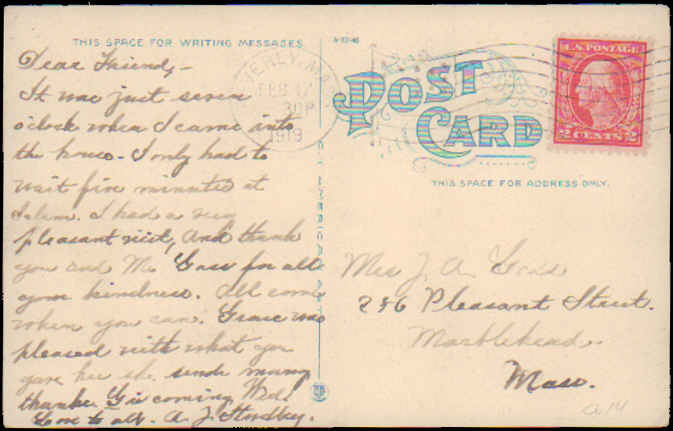 THIS SPACE FOR WRITING MESSAGES
A-22-46
Dear Friend,-
It was just seven
o'clock when I came into
the house. I only had to
wait five minutes at
Salem. I had a very
pleasant visit, and thank
you and Mr. Goss for all
your kindness. All come
when you can. Grace was
pleased with what you
gave her she sends many
thanks G is coming Wed.
Love to all. A. J.
ERLY, MA
FEB 17
30P
1919
POST
CARD
U.S. POSTAGE
2 CENTS 2
THIS SPACE FOR ADDRESS ONLY.
Mrs J. A. Goss
286 Pleasant Street.
Marblehead.
Mass.
a14